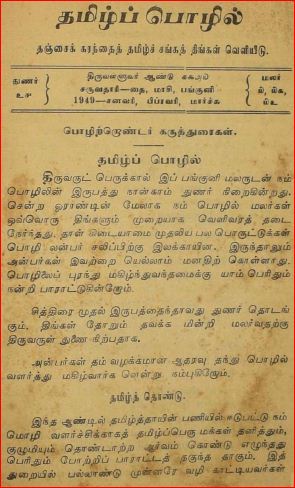 தமிழ்ப் பொழில்
தஞ்சைக் கரந்தைத் தமிழ்ச் சங்கத் திங்கள் வெளியீடு.
துணர்
௨௪
திருவள்ளுவர் ஆண்டு
சருவதாரி—தை, மாசி, பங்குனி
1949—சனவரி, பிப்ரவரி, மார்ச்சு
மலர்
௰, ௰௧,
௰௨
பொழிற்றொண்டர் கருத்துரைகள்.
தமிழ்ப் பொழில்
திருவருட் பெருக்கால் இப் பங்குனி மலருடன் நம்
பொழிலின் இருபத்து நான்காம் துணர் நிறைகின்றது.
சென்ற ஓராண்டின் மேலாக நம் பொழில் மலர்கள்
ஒவ்வொரு திங்களும் முறையாக வெளிவரத் தடை
நேர்ந்தது. தாள் கிடையாமை முதலிய பல பொருட்டுக்கள்
பொழி லன்பர் சலிப்பிற்கு இலக்காயின. இருந்தாலும்
அன்பர்கள் இவற்றை யெல்லாம் மனதிற் கொள்ளாது.
பொழிலைப் புரந்து மகிழ்ந்துவந்தமைக்கு யாம் பெரிதும்
நன்றி பாராட்டுகின்றேம்.
சித்திரை முதல் இருபத்தைந்தாவது துணர் தொடங்
கும். திங்கள் தோறும் தவக்க மின்றி மலர்வதற்கு
திருவருள் துணை நிற்பதாக.
அன்பர்கள் தம் வழக்கமான ஆதரவு தந்து பொழில்
வளர்த்து மகிழ்வார்க ளென்று நம்புகிறேம்.
தமிழ்த் தொண்டு.
இந்த ஆண்டில் தமிழ்த்தாயின் பணியில் ஈடுபட்டு நம்
மொழி வளர்ச்சிக்காகத் தமிழ்ப்பெரு மக்கள் தனித்தும்,
குழுமியும் தொண்டாற்ற ஆர்வம் கொண்டு எழுந்தது
பெரிதும் போற்றிப் பாராட்டத் தகுந்த தாகும். இத்
துறையில் பல்லாண்டு முன்னரே வழி காட்டியவர்கள்